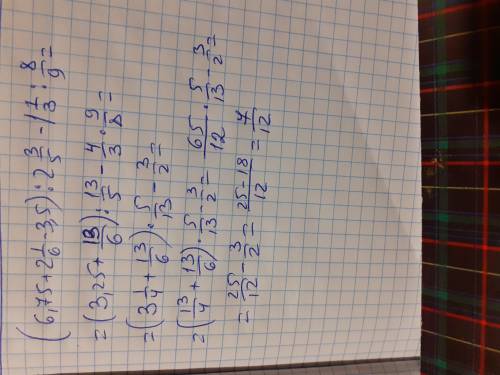 (6,75+2 1/6-3,5):2 3/5-1 1/3:8/9=
=(3,25+13/6):13/5-4/3·9/8=
=(3 1/4+13/6)·5/13-3/2=
=(13/4+13/6)·5/13-3/2=65/12·5/13-3/2=
=25/12-3/2=25-18/12=7/12